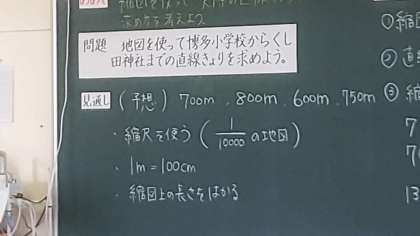 求め方を考えよう
問題 地図を使って博多小学校からくし
田神社までの直線きょりを求めよう。
見通し (予想) 700m、800m、600m、750m
・縮尺を使う (1/10000の地図)
・1m=100cm
・縮図上の長さをはかる
①縮
②直
③縮
7
13